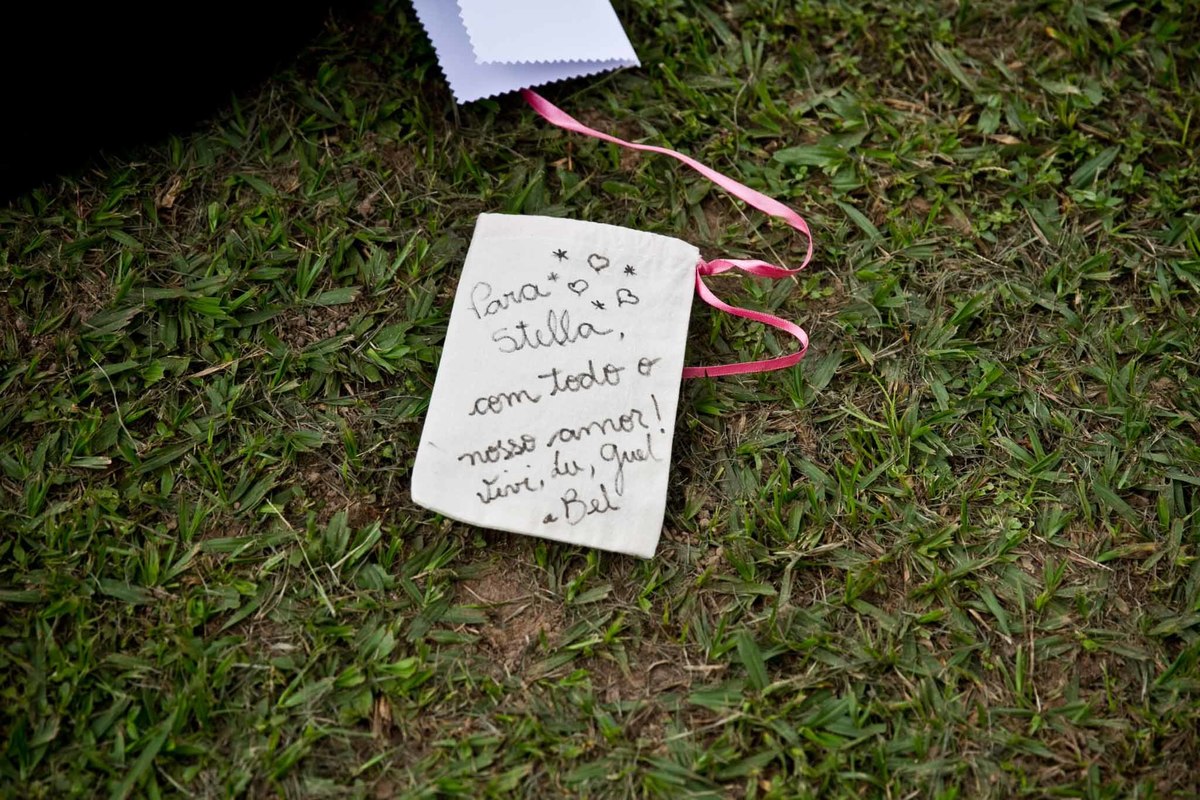 Para
Stella,
com todo o
nosso amor!
Vivi, Lu, Guel
e Bel